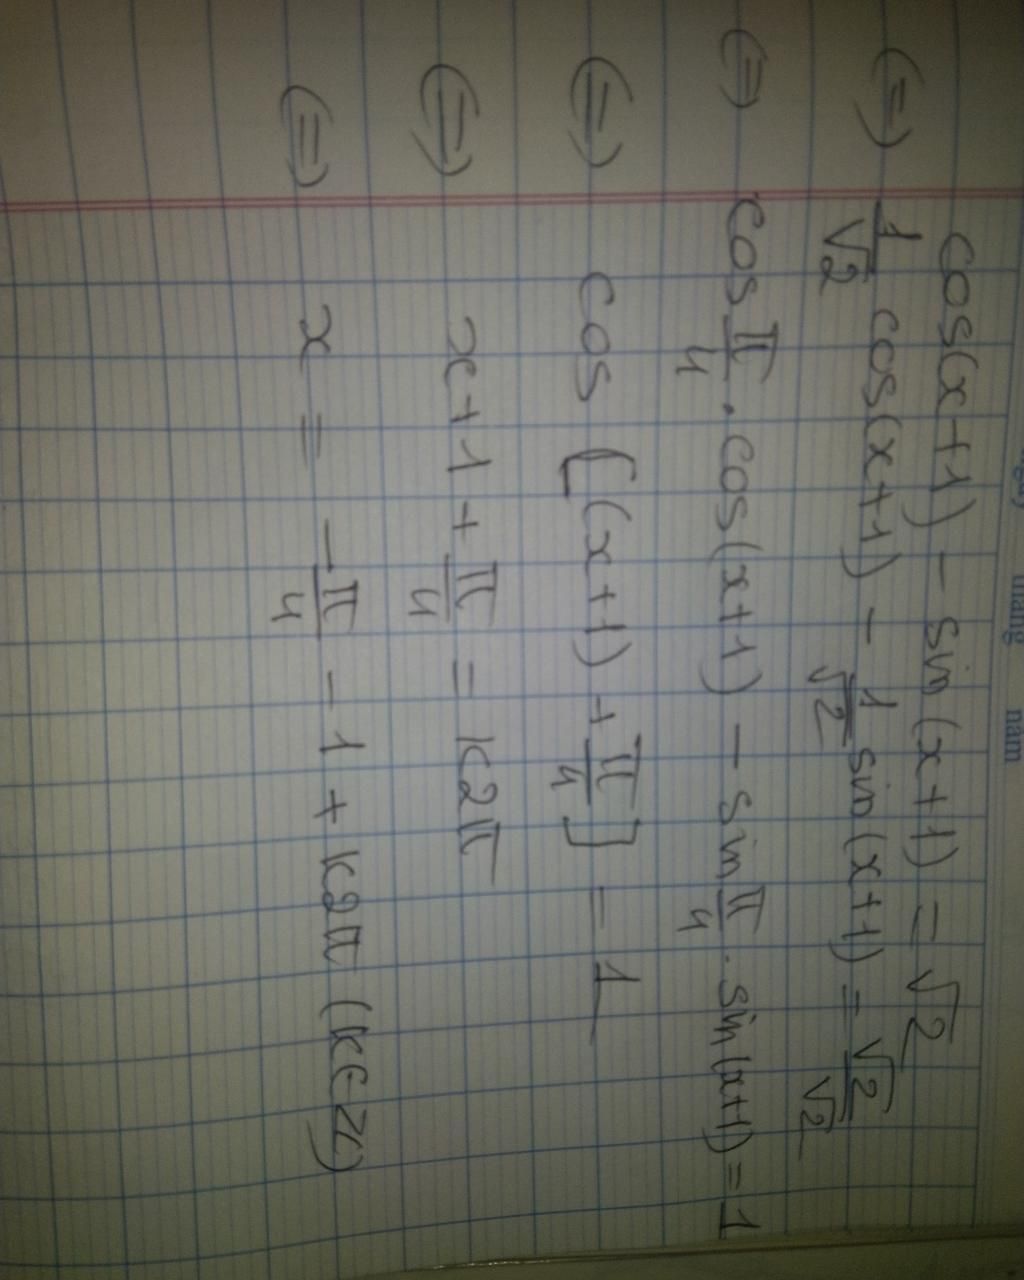 ngày tháng năm
cos(x+1) - sin(x+1) = √2
(=) 1/√2 cos(x+1) - 1/√2 sin(x+1) = √2/√2
(=) cos π/4 . cos(x+1) - sin π/4 . sin(x+1) = 1
(=) cos [(x+1) + π/4] = 1
(=) x+1 + π/4 = k2π
(=) x = -π/4 - 1 + k2π (k∈Z)